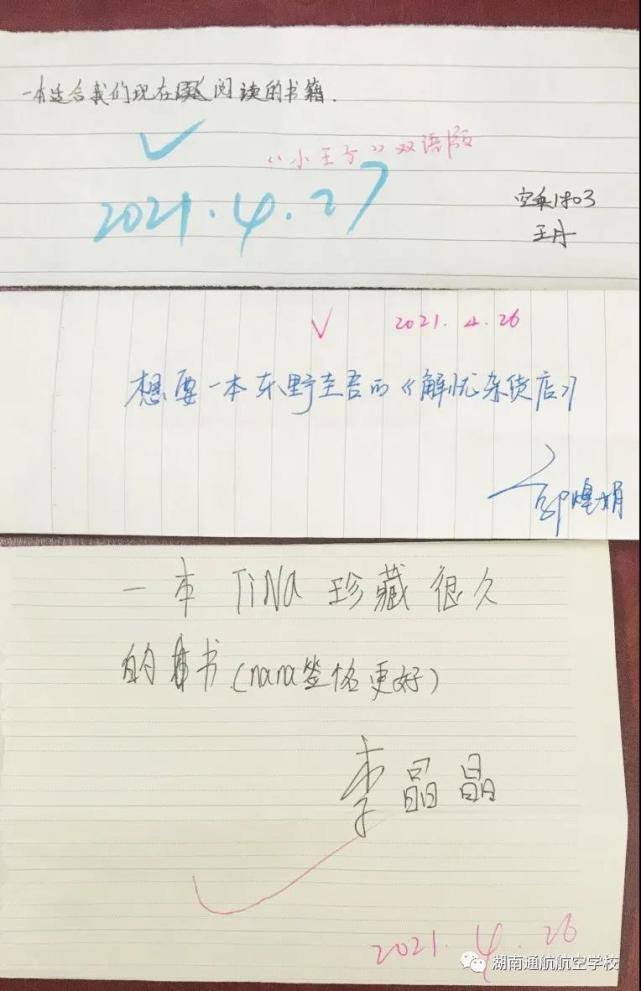 一本适合我们现在阅读的书籍.
“小王子”双语版
2021.4.27
空乘1803
王丹
2021.4.26
想要一本东野圭吾的《解忧杂货店》
一本 TiNa 珍藏很久
的书(nana签名更好)
李晶晶
2021.4.26
湖南通航航空学校